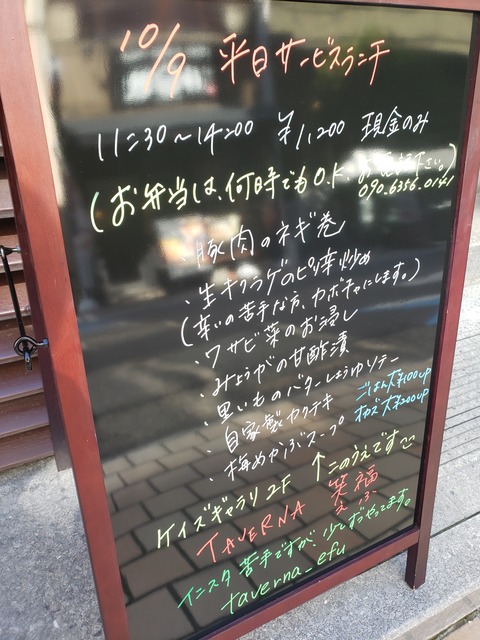 10/9 平日サービスランチ
11:30～14:00 ¥1,200 現金のみ
(お弁当は、何時でもO.K. お電話下さい。)
090.6356.0141
・豚肉のネギ巻
・生キクラゲのピリ辛炒め
(辛いの苦手な方、カボチャにします。)
・ワサビ菜のお浸し
・みょうがの甘酢漬
・里いものバターしょうゆソテー
・自家製カクテキ
ごはん大¥100up
・梅めかぶスープ
おかず大¥200up
ケイズギャラリ2F ↑このうえです
TAVERNA 笑福
えふ
インスタ苦手ですが、少しずつやってます。
taverna_efu